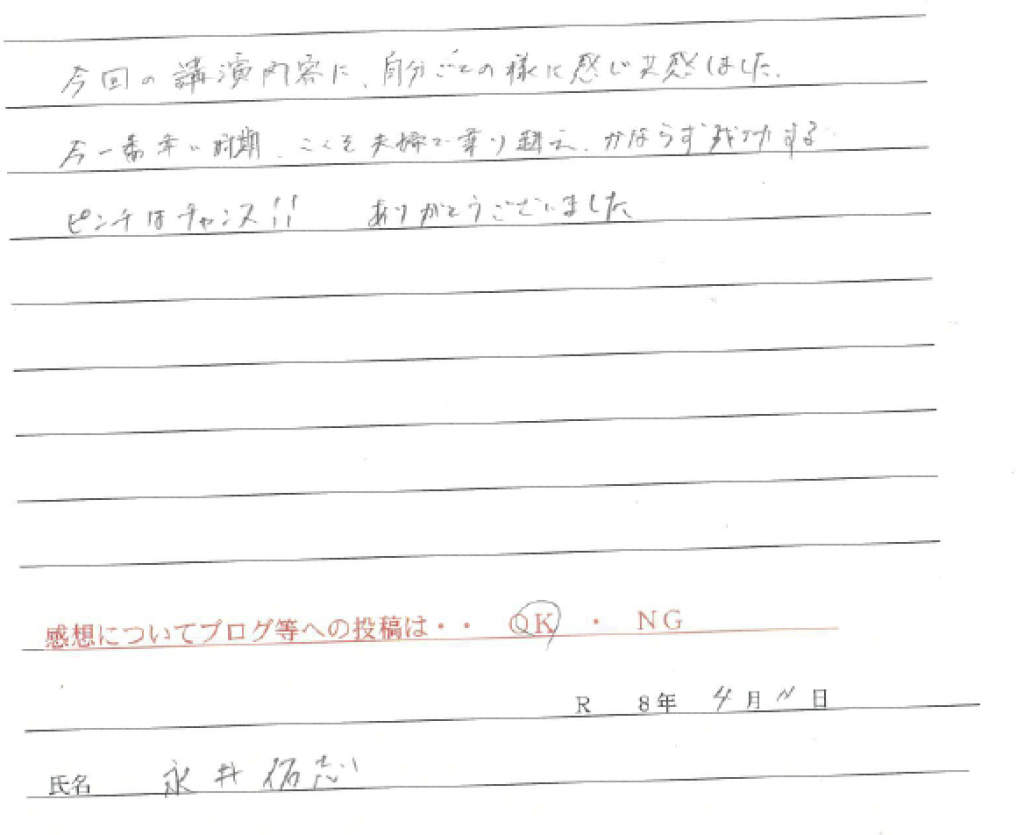 今回の講演内容に、自分ごとの様に感じ共感しました。
今一番辛い時期、こくを夫婦で乗り越え、かならず成功する
ピンチはチャンス!! ありがとうございました
感想についてブログ等への投稿は・・ OK ・ NG
R 8年 4月11日
氏名 永井佑志